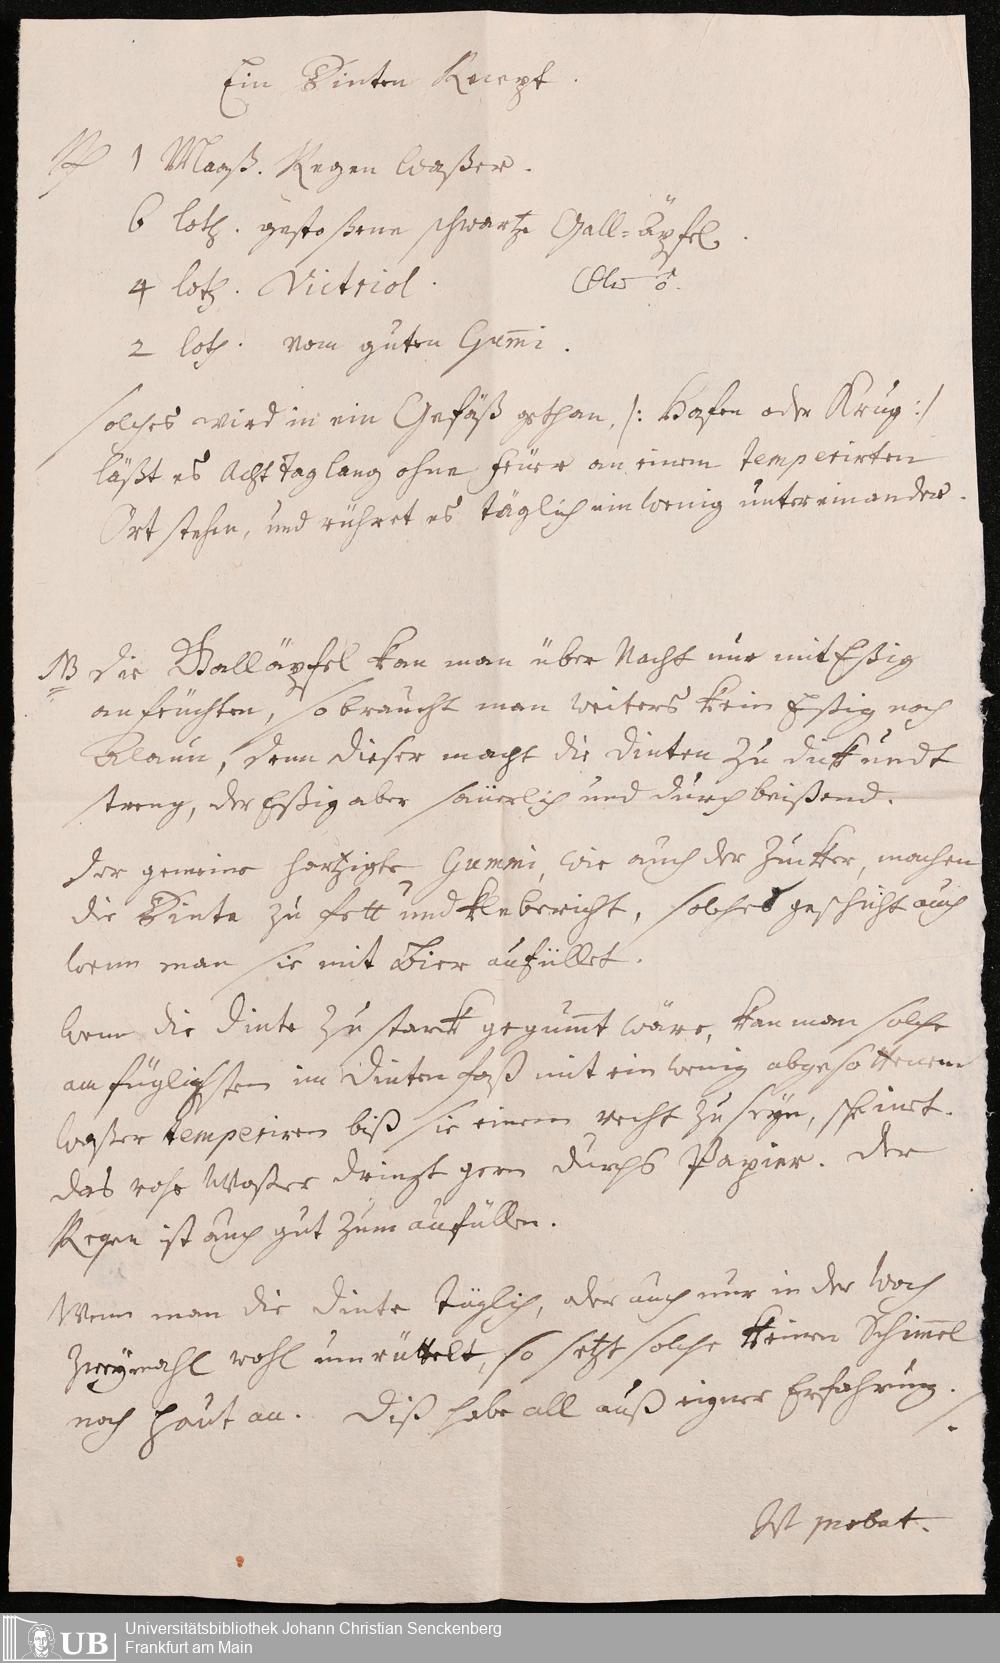 Ein Dinten Recept.
Rp 1 Maaß. Regen Waßer.
6 loth. gestoßene schwartze Gall-äpfel.
4 loth. Victriol.
2 loth. vom guten Gum̄i.
solches wird in ein Gefäß gethan, /: Hafen oder Krug :/
läßt es Acht Tag lang ohne feüer an einem temperirten
Ort stehen, und rühret es täglich ein wenig untereinander.
NB die Galläpfel kan man über Nacht nur mit Eßig
anfeüchten, so braucht man weiters kein Eßig noch
Alaun, denn dieser macht die Dinten zu dick undt
streng, der Eßig aber säüerlich und durchbeißend.
der gemeine hartzigte Gummi, wie auch der Zucker, machen
die Dinte zu fett und klebericht, solches geschicht auch
wenn man sie mit Bier auffüllet.
Wenn die Dinte zu starck gegum̄t wäre, kan man solche
am füglichsten im Dintenfaß mit ein wenig abgesottenem
Waßer temperiren biß sie einem recht zu seyn, scheinet.
das rohe Waßer dringt gern durchs Papier. Der
Regen ist auch gut zum auffüllen.
Wenn man die Dinte täglich, oder auch nur in der Woch
zweymahl wohl umrüttelt, so setzt solche keinen Schim̄el
noch Haut an. Diß habe all auß eigner Erfahrung.
Ist probat.
UB
Universitätsbibliothek Johann Christian Senckenberg
Frankfurt am Main